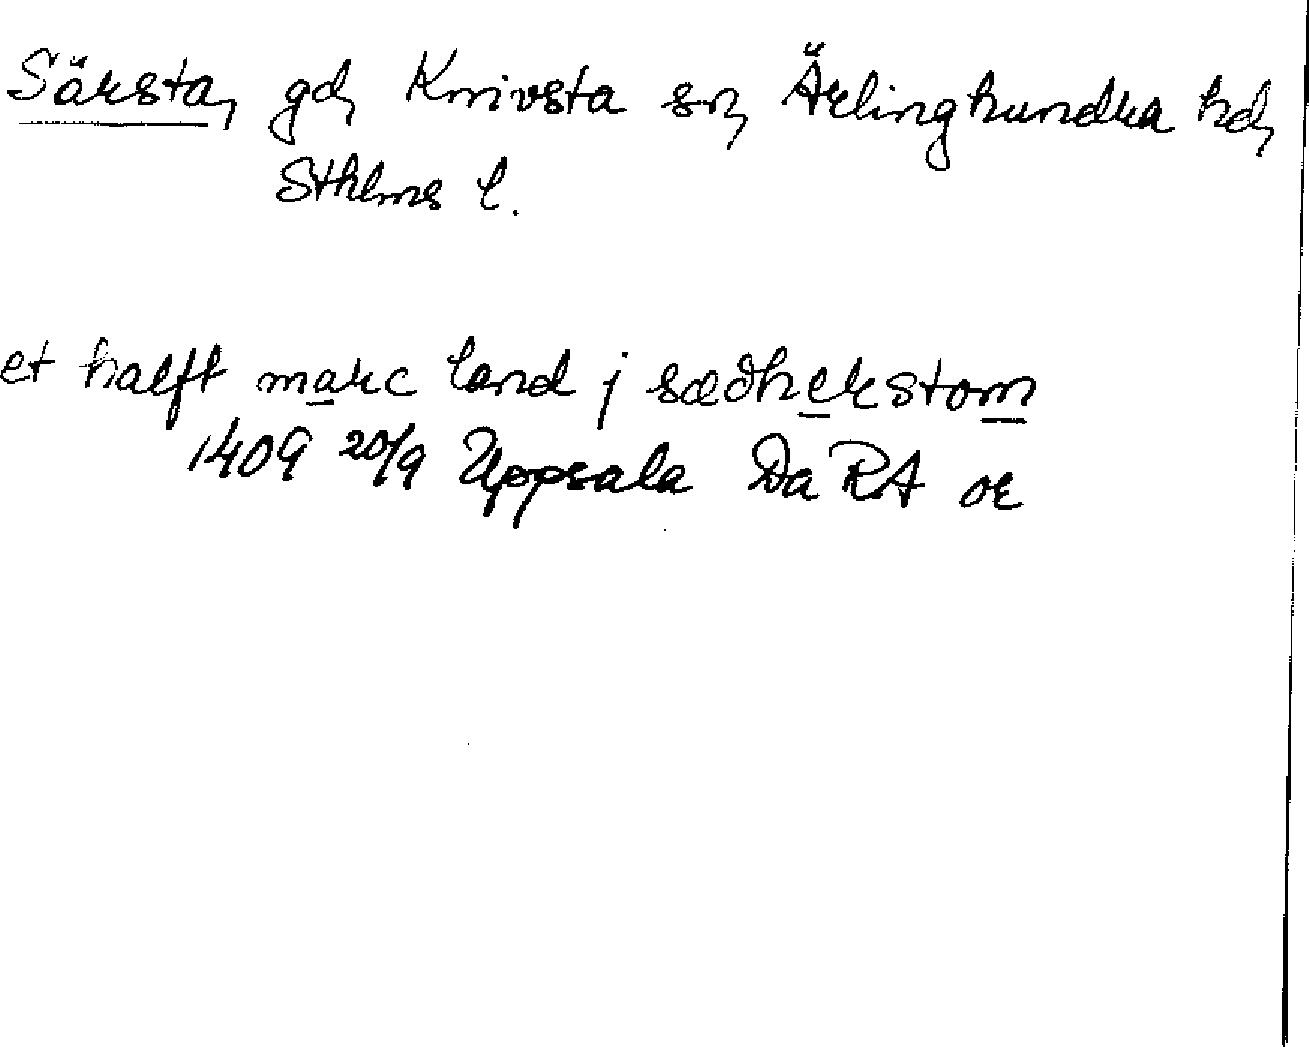 Särsta, gd, Knivsta sn, Ärlinghundra hd,
Sthlms l.
et halft marc land j sædherstom
1409 20/9 Uppsala Da RA or